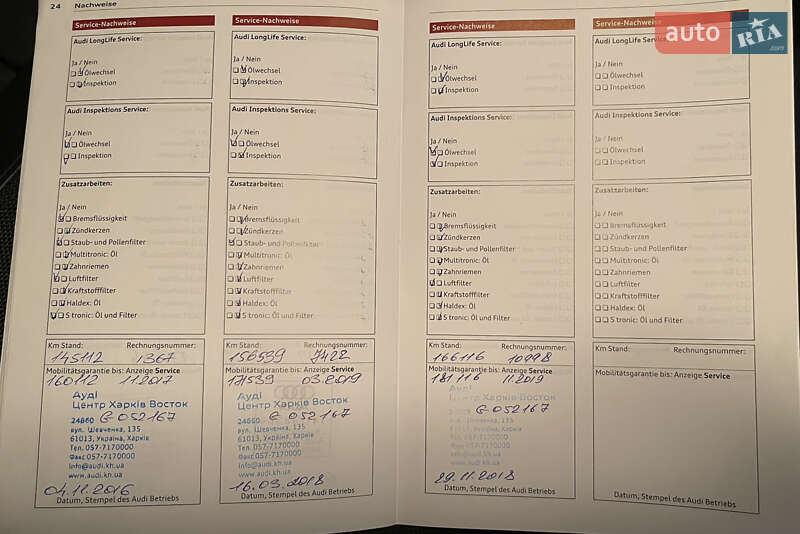 24 Nachweise
Service-Nachweise
Audi LongLife Service:
Ja / Nein
Ölwechsel
Inspektion
Audi Inspektions Service:
Ja / Nein
Ölwechsel
Inspektion
Zusatzarbeiten:
Ja / Nein
Bremsflüssigkeit
Zündkerzen
Staub- und Pollenfilter
Multitronic: Öl
Zahnriemen
Luftfilter
Kraftstofffilter
Haldex: Öl
S tronic: Öl und Filter
Km Stand: Rechnungsnummer:
145112 1367
Mobilitätsgarantie bis: Anzeige Service
160112 11.2017
Ауді
Центр Харків Восток
24860 G 052167
вул. Шевченка, 135
61013, Україна, Харків
Тел. 057-7170000
Факс 057-7170000
info@audi.kh.ua
www.audi.kh.ua
04.11.2016
Datum, Stempel des Audi Betriebs
Service-Nachweise
Audi LongLife Service:
Ja / Nein
Ölwechsel
Inspektion
Audi Inspektions Service:
Ja / Nein
Ölwechsel
Inspektion
Zusatzarbeiten:
Ja / Nein
Bremsflüssigkeit
Zündkerzen
Staub- und Pollenfilter
Multitronic: Öl
Zahnriemen
Luftfilter
Kraftstofffilter
Haldex: Öl
S tronic: Öl und Filter
Km Stand: Rechnungsnummer:
156539 7422
Mobilitätsgarantie bis: Anzeige Service
171539 03.2019
Ауді
Центр Харків Восток
24860 G 052167
вул. Шевченка, 135
61013, Україна, Харків
Тел. 057-7170000
Факс 057-7170000
info@audi.kh.ua
www.audi.kh.ua
16.03.2018
Datum, Stempel des Audi Betriebs
Service-Nachweise
Audi LongLife Service:
Ja / Nein
Ölwechsel
Inspektion
Audi Inspektions Service:
Ja / Nein
Ölwechsel
Inspektion
Zusatzarbeiten:
Ja / Nein
Bremsflüssigkeit
Zündkerzen
Staub- und Pollenfilter
Multitronic: Öl
Zahnriemen
Luftfilter
Kraftstofffilter
Haldex: Öl
S tronic: Öl und Filter
Km Stand: Rechnungsnummer:
166116 10998
Mobilitätsgarantie bis: Anzeige Service
181116 11.2019
Ауді
Центр Харків Восток
G 052167
вул. Шевченка, 135
61013, Україна, Харків
Тел. 057-7170000
Факс 057-7170000
info@audi.kh.ua
www.audi.kh.ua
29.11.2018
Datum, Stempel des Audi Betriebs
Service-Nachweise
Audi LongLife Service:
Ja / Nein
Ölwechsel
Inspektion
Audi Inspektions Service:
Ja / Nein
Ölwechsel
Inspektion
Zusatzarbeiten:
Ja / Nein
Bremsflüssigkeit
Zündkerzen
Staub- und Pollenfilter
Multitronic: Öl
Zahnriemen
Luftfilter
Kraftstofffilter
Haldex: Öl
S tronic: Öl und Filter
Km Stand: Rechnungsnummer:
Mobilitätsgarantie bis: Anzeige Service
Datum, Stempel des Audi Betriebs
auto RIA.com